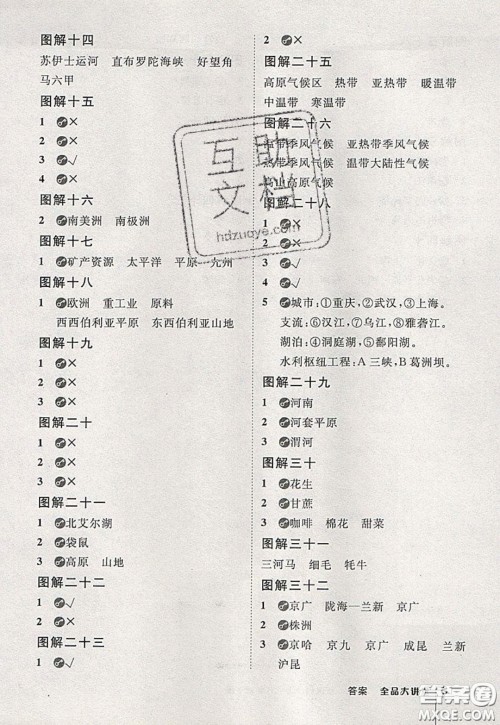 图解十四
苏伊士运河 直布罗陀海峡 好望角
马六甲
图解十五
1 ×
2 ×
3 √
4 ×
图解十六
2 南美洲 南极洲
图解十七
1 矿产资源 太平洋 平原 九州
图解十八
1 欧洲 重工业 原料
西西伯利亚平原 东西伯利亚山地
图解十九
1 ×
2 ×
图解二十
1 ×
2 ×
3 ×
图解二十一
1 北艾尔湖
2 袋鼠
3 高原 山地
图解二十二
1 √
2 ×
图解二十三
1 √
2 ×
图解二十五
高原气候区 热带 亚热带 暖温带
中温带 寒温带
图解二十六
温带季风气候 亚热带季风气候
热带季风气候 温带大陆性气候
高山高原气候
图解二十八
1 ×
2 ×
3 √
4 √
5 城市：①重庆，②武汉，③上海。
支流：⑥汉江，⑦乌江，⑧雅砻江。
湖泊：④洞庭湖，⑤鄱阳湖。
水利枢纽工程：A三峡，B葛洲坝。
图解二十九
1 河南
2 河套平原
3 渭河
图解三十
1 花生
2 甘蔗
3 咖啡 棉花 甜菜
图解三十一
三河马 细毛 牦牛
图解三十二
1 京广 陇海—兰新 京广
2 株洲
3 京哈 京九 京广 成昆 兰新
沪昆
互助文档
hdzuoye.com
答案 全品大讲
答案圈
MXQE.COM